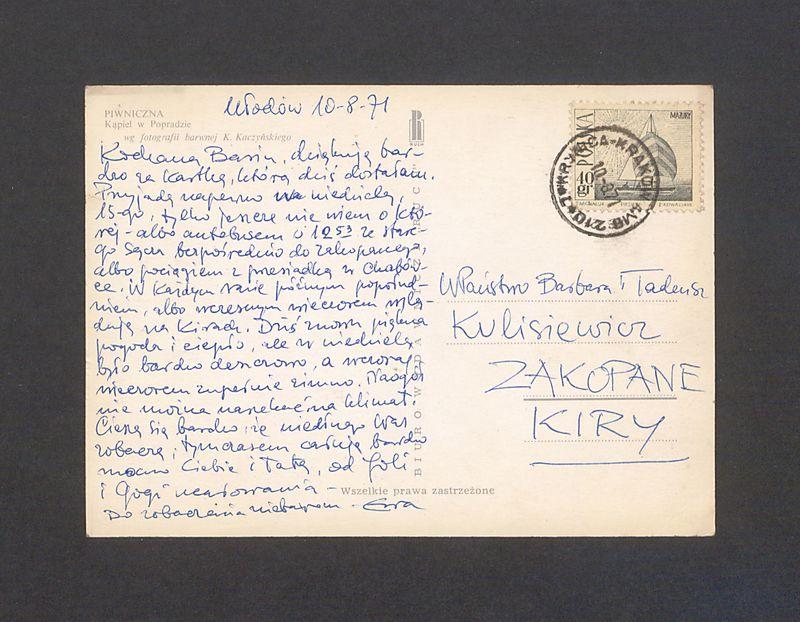 PIWNICZNA
Kąpiel w Popradzie
wg fotografii barwnej K. Kaczyńskiego
10-8-71
Kochana Basiu, dziękuję bar-
dzo za kartkę, którą dziś dostałam.
Przyjadę napewno na niedzielę,
15-go, tylko jeszcze nie wiem o któ-
rej - albo autobusem o 12 53 ze Stare-
go Sącza bezpośrednio do Zakopanego,
albo pociągiem z przesiadką w Chabów-
ce. W każdym razie późnym popołud-
niem, albo wczesnym wieczorem wylą-
duję na Kirach. Dziś znowu piękna
pogoda i ciepło, ale w niedzielę
było bardzo deszczowo, a wczoraj
wieczorem zupełnie zimno. Naogół
nie można narzekać na klimat.
Cieszę się bardzo, że niedługo Was
zobaczę, tymczasem całuję bardzo
mocno Ciebie i Tatę, od Joli
i Gogi ucałowania -
Do zobaczenia niebawem - Ewa
RUCH
BIURO WYDAWNICZE RUCH
Wszelkie prawa zastrzeżone
MAZURY
POLSKA
40 gr
KRYNICA-KRAKÓW
10.8.71
Barbara i Tadeusz
Kulisiewicz
ZAKOPANE
KIRY